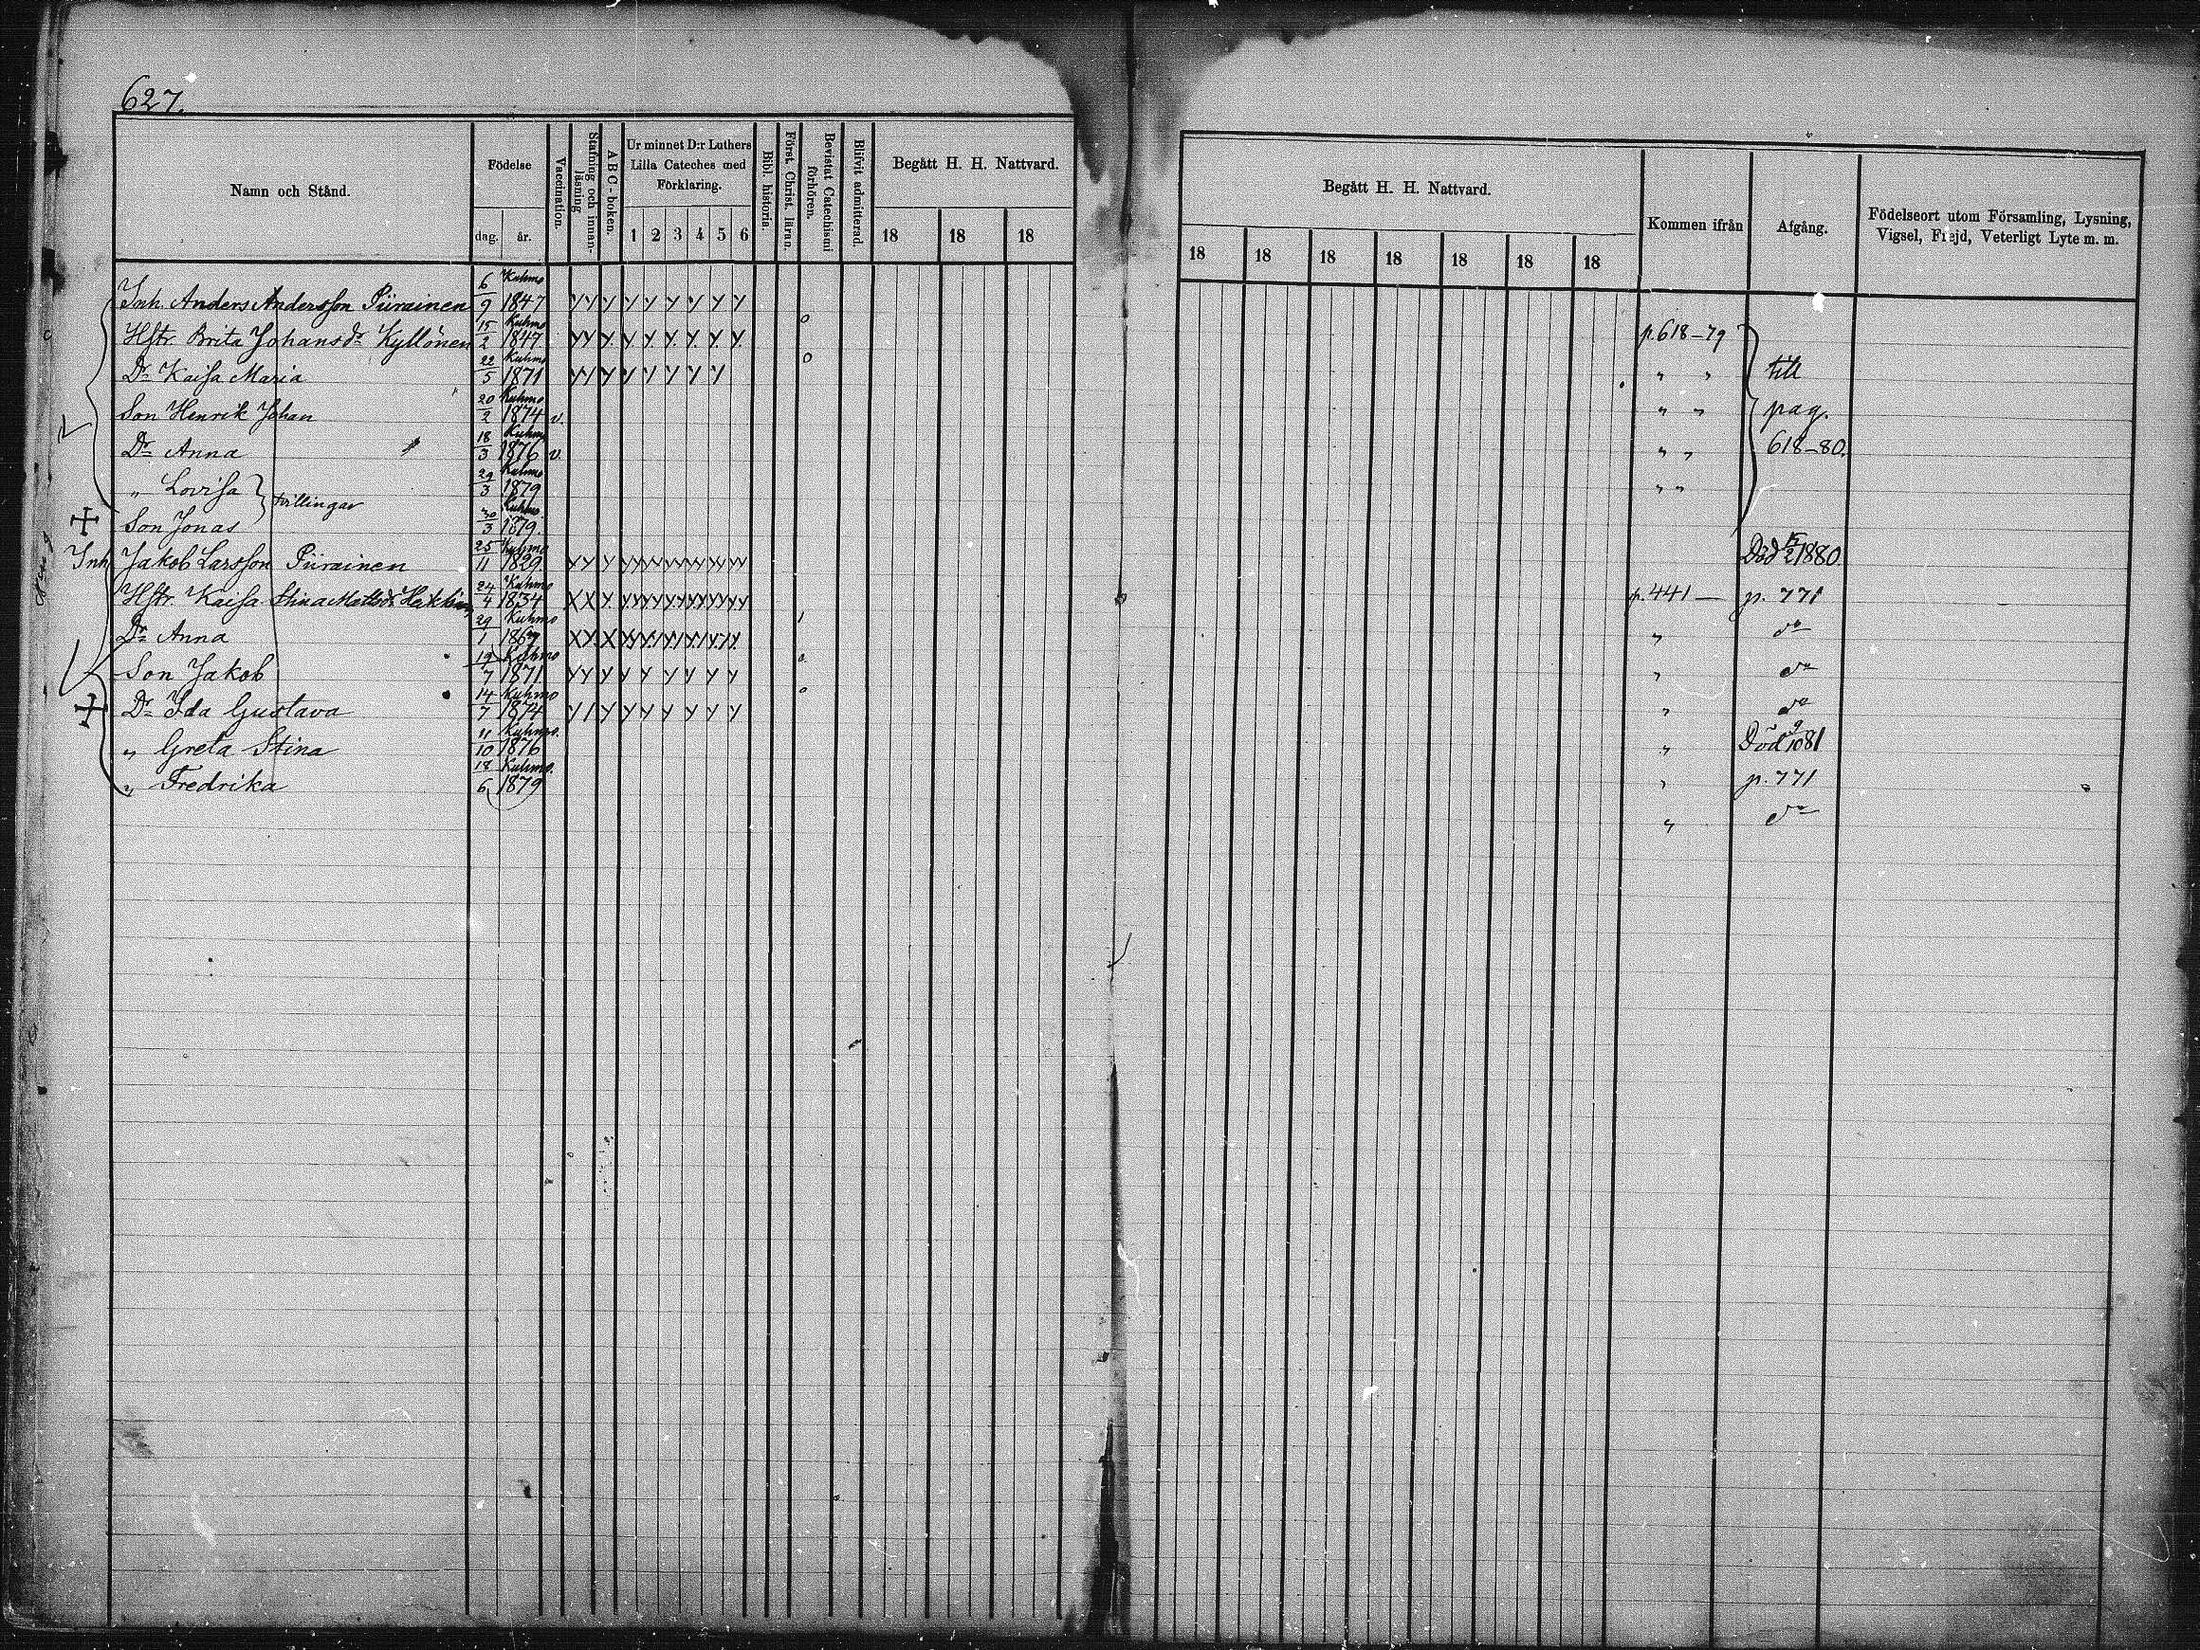 627.
Namn och Stånd.
Födelse
dag.
år.
Vaccination.
Stafning och innanläsning
ABC-boken.
Ur minnet D:r Luthers Lilla Cateches med Förklaring.
1 2 3 4 5 6
Bibl. historia.
Först. Christ. läran.
Bevistat Catechismi förhören.
Blifvit admitterad.
Begått H. H. Nattvard.
18 18 18
Begått H. H. Nattvard.
18 18 18 18 18 18 18
Kommen ifrån
Afgång.
Födelseort utom Församling, Lysning, Vigsel, Frejd, Veterligt Lyte m. m.
Inh. Anders Andersson Piirainen 6/9 Kuhmo 1847 y y y y y y y y y
Hstr. Brita Johansdr Kyllönen 15/2 Kuhmo 1847 y y y y y y y y y o p. 618-79
Dr Kaisa Maria 22/5 Kuhmo 1871 y y y y y y y y o " " till
Son Henrik Johan 20/2 Kuhmo 1874 v. " " pag.
Dr Anna 18/3 Kuhmo 1876 v. " " 618-80.
" Lovisa 29/3 Kuhmo 1879 " "
tvillingar
Son Jonas 30/3 Kuhmo 1879.
Inh Jakob Larsson Piirainen 25/11 Kuhmo 1829 Död 1880.
Hstr. Kaisa Stina Mattsdr 24/4 Kuhmo 1834 p. 441 — p. 771
Dr Anna 29/1 Kuhmo 1867 " do
Son Jakob 19/7 Kuhmo 1871 y y y y y y y y o " do
Dr Ida Gustava 14/7 Kuhmo 1874 y y y y y y y y o " do
" Greta Stina 11/10 Kuhmo. 1876 " Död 9/10 81
" Fredrika 18/6 Kuhmo. 1879 " p. 771
" do